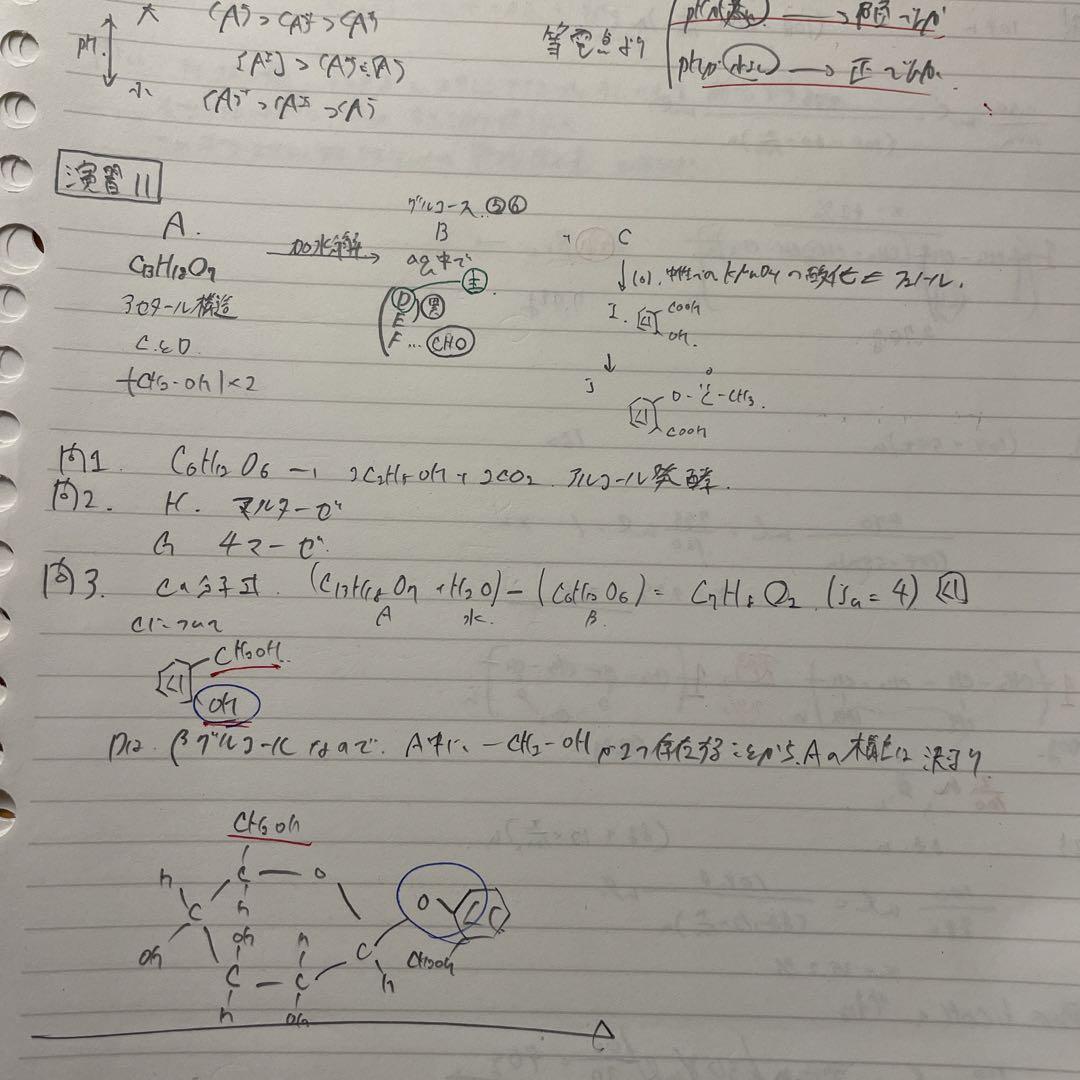 大 [A⁻] > [A±] > [A⁺]
pH. [A±] > [A⁺]=[A⁻]
小 [A⁺] > [A±] > [A⁻]
等電点より
pHが
pHが 小さい → 正
演習11
A.
C13H18O7
アセタール構造
C.とO
-(CH2-OH)×2
加水解
グルコース ⑤⑥
B
aq中で
D 主
E
F … CHO
+ C
↓(O).中性のKMnO4の酸化 = フェノール.
I. COOH
OH.
↓
J O-C-CH3.
O
COOH
問1. C6H12O6 → 2C2H5OH + 2CO2. アルコール発酵.
問2. H. マルターゼ
G チマーゼ.
問3. Cの分子式. (C13H18O7 + H2O) - (C6H12O6) = C7H8O2. (Ia = 4)
A 水. B.
Cについて
CH2OH.
OH
Dは. βグルコース なので. A中に、-CH2-OHが2つ存在することから、Aの構造は 決まり
CH2OH
C O
H H
C O
OH OH H C CH2OH
C - C H
H OH